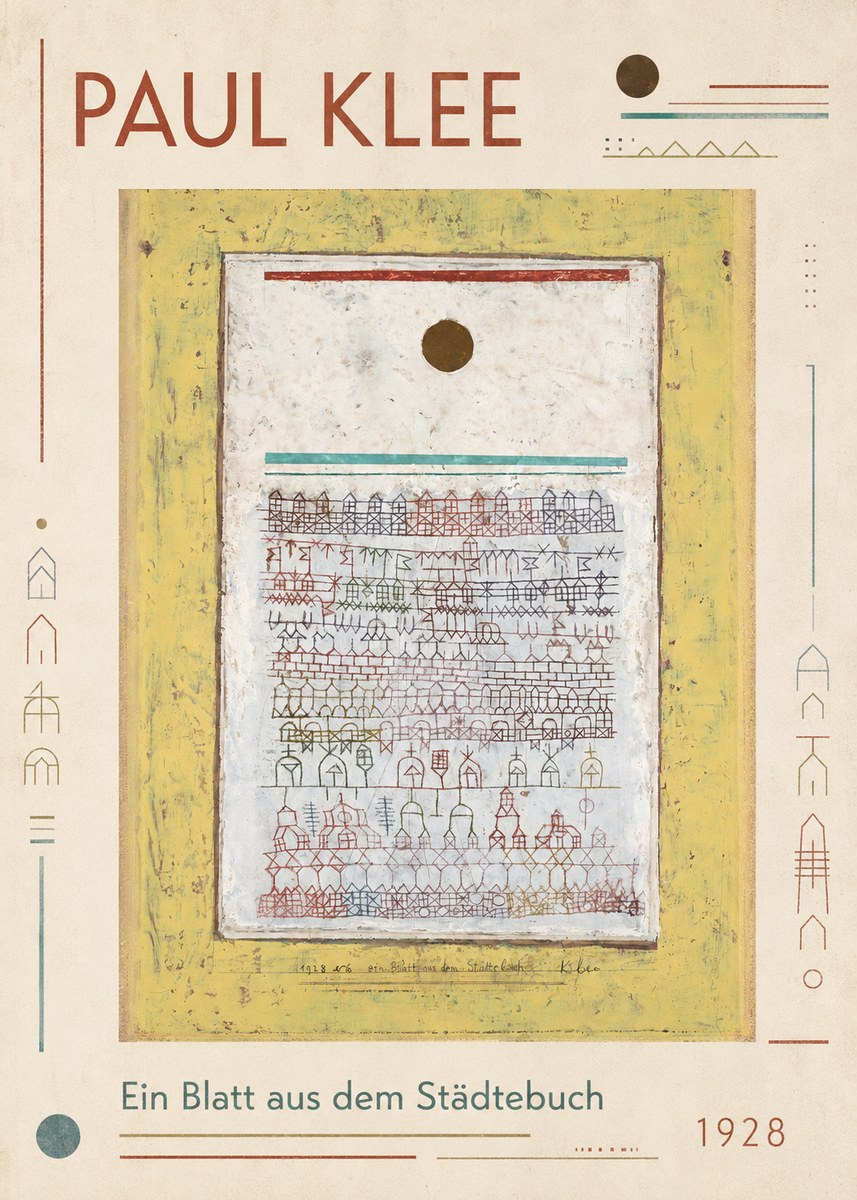 PAUL KLEE
1928 N6 ein Blatt aus dem Städtebuch Klee
Ein Blatt aus dem Städtebuch
1928